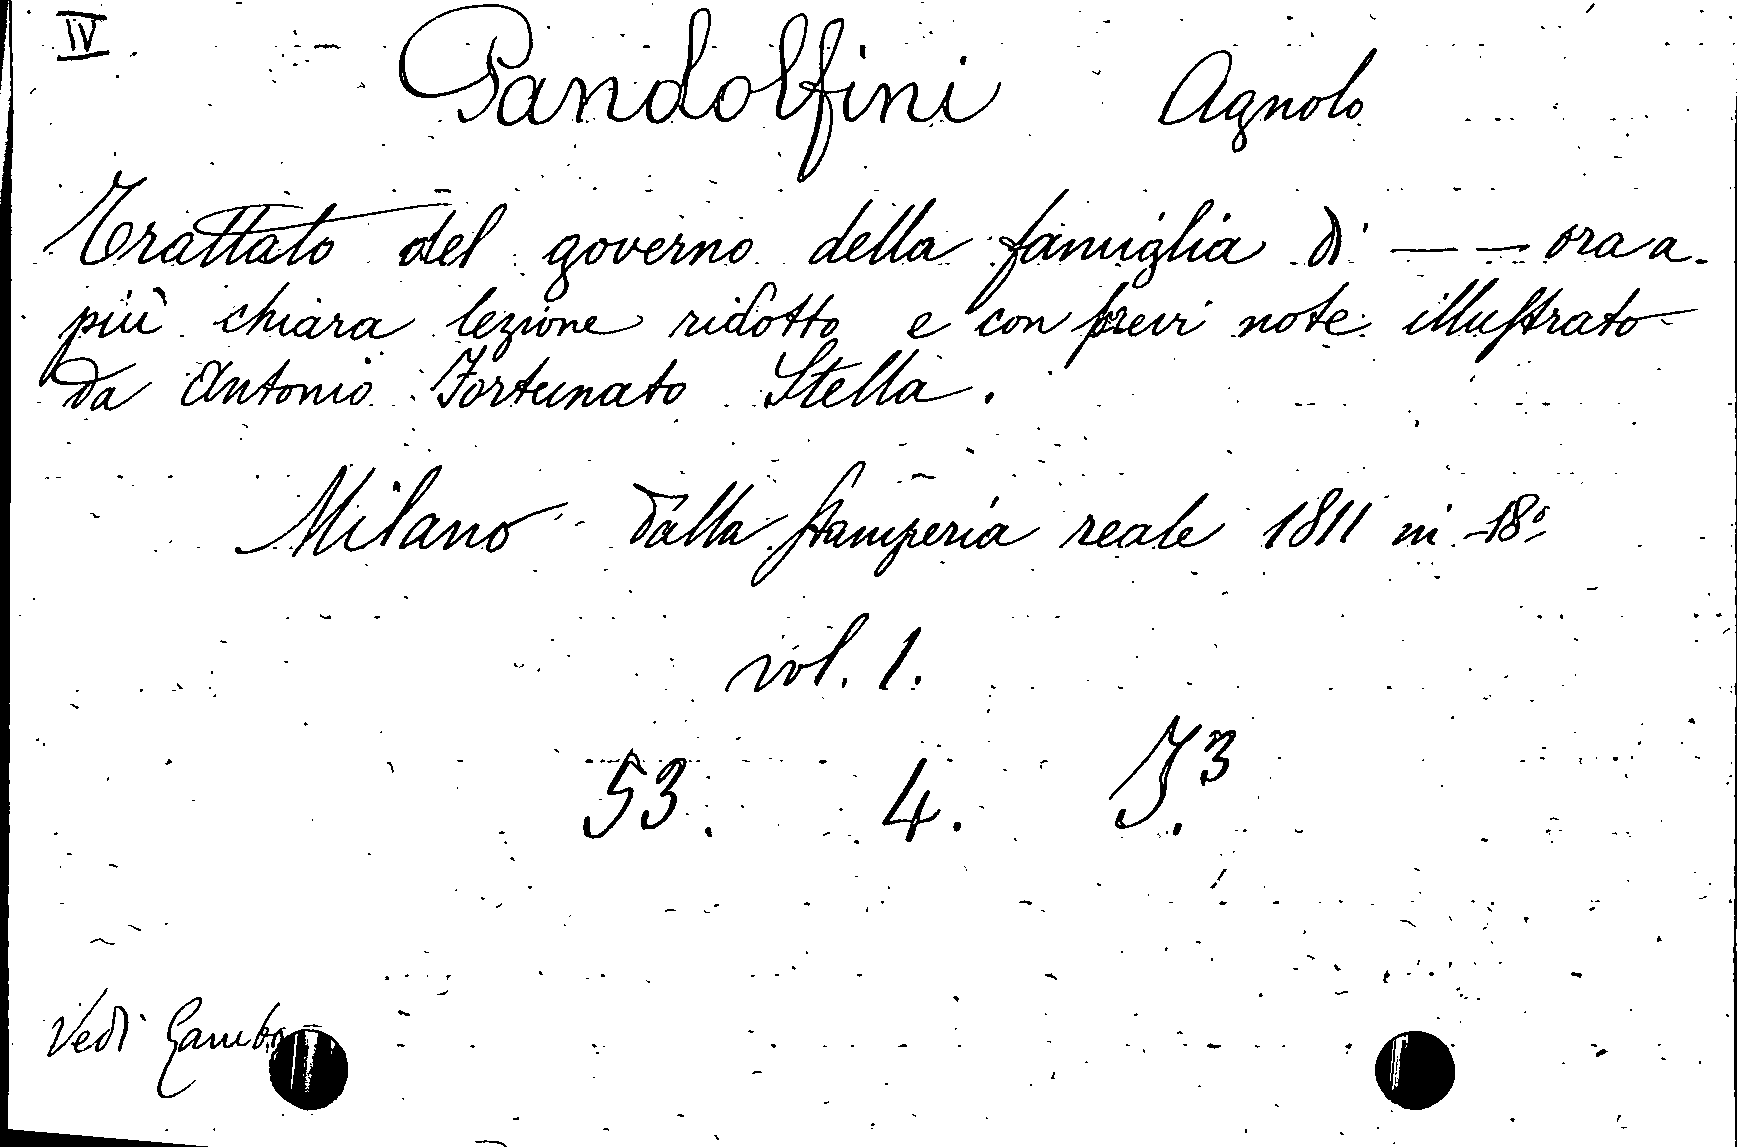 IV.
Pandolfini Agnolo
Trattato del governo della famiglia di — — ora a
più chiara lezione ridotto e con brevi note illustrato
da Antonio Fortunato Stella.
Milano dalla stamperia reale 1811 in 18º
vol. 1.
53. 4. J.3
Vedi Gamba